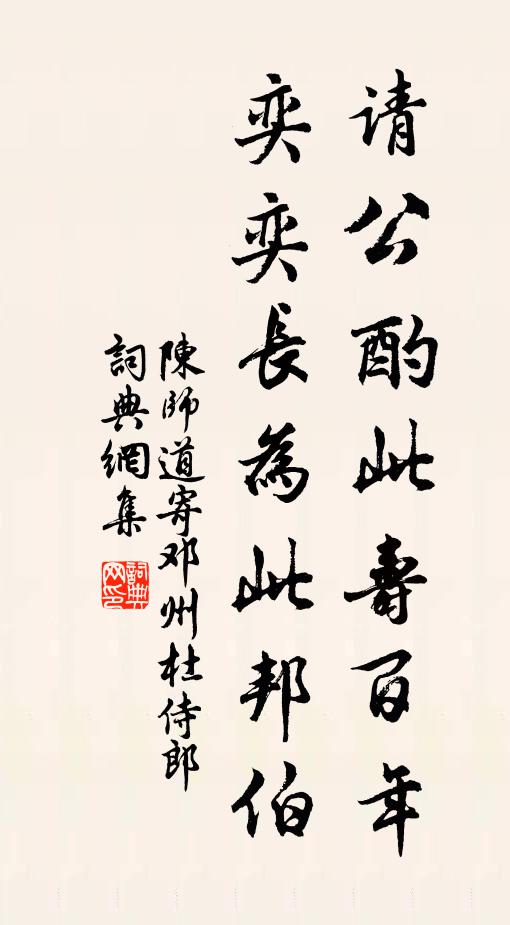 请公酌此壽百年
奕奕長為此邦伯
陳師道寄邓州杜侍郎
詞典網集
詞典网印